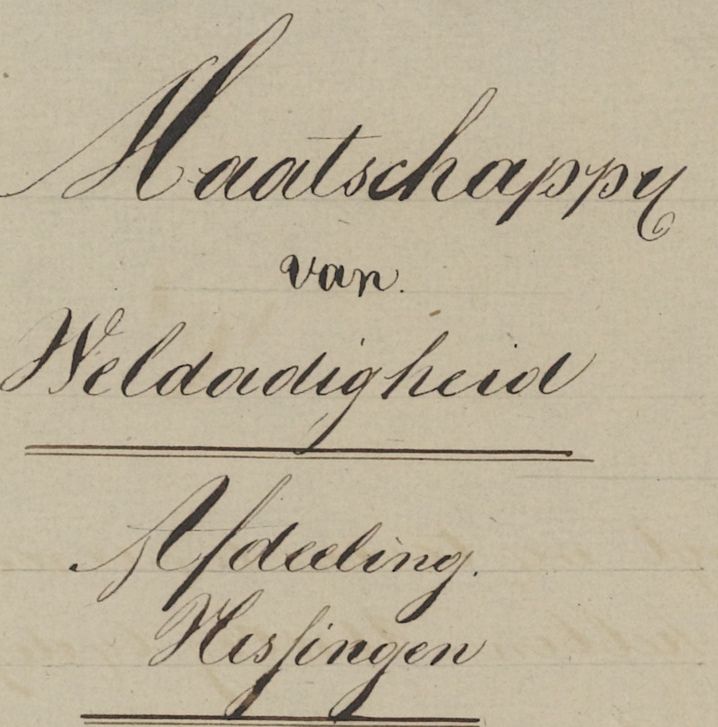 Maatschappy
van.
Weldadigheid
Afdeeling.
Vlissingen